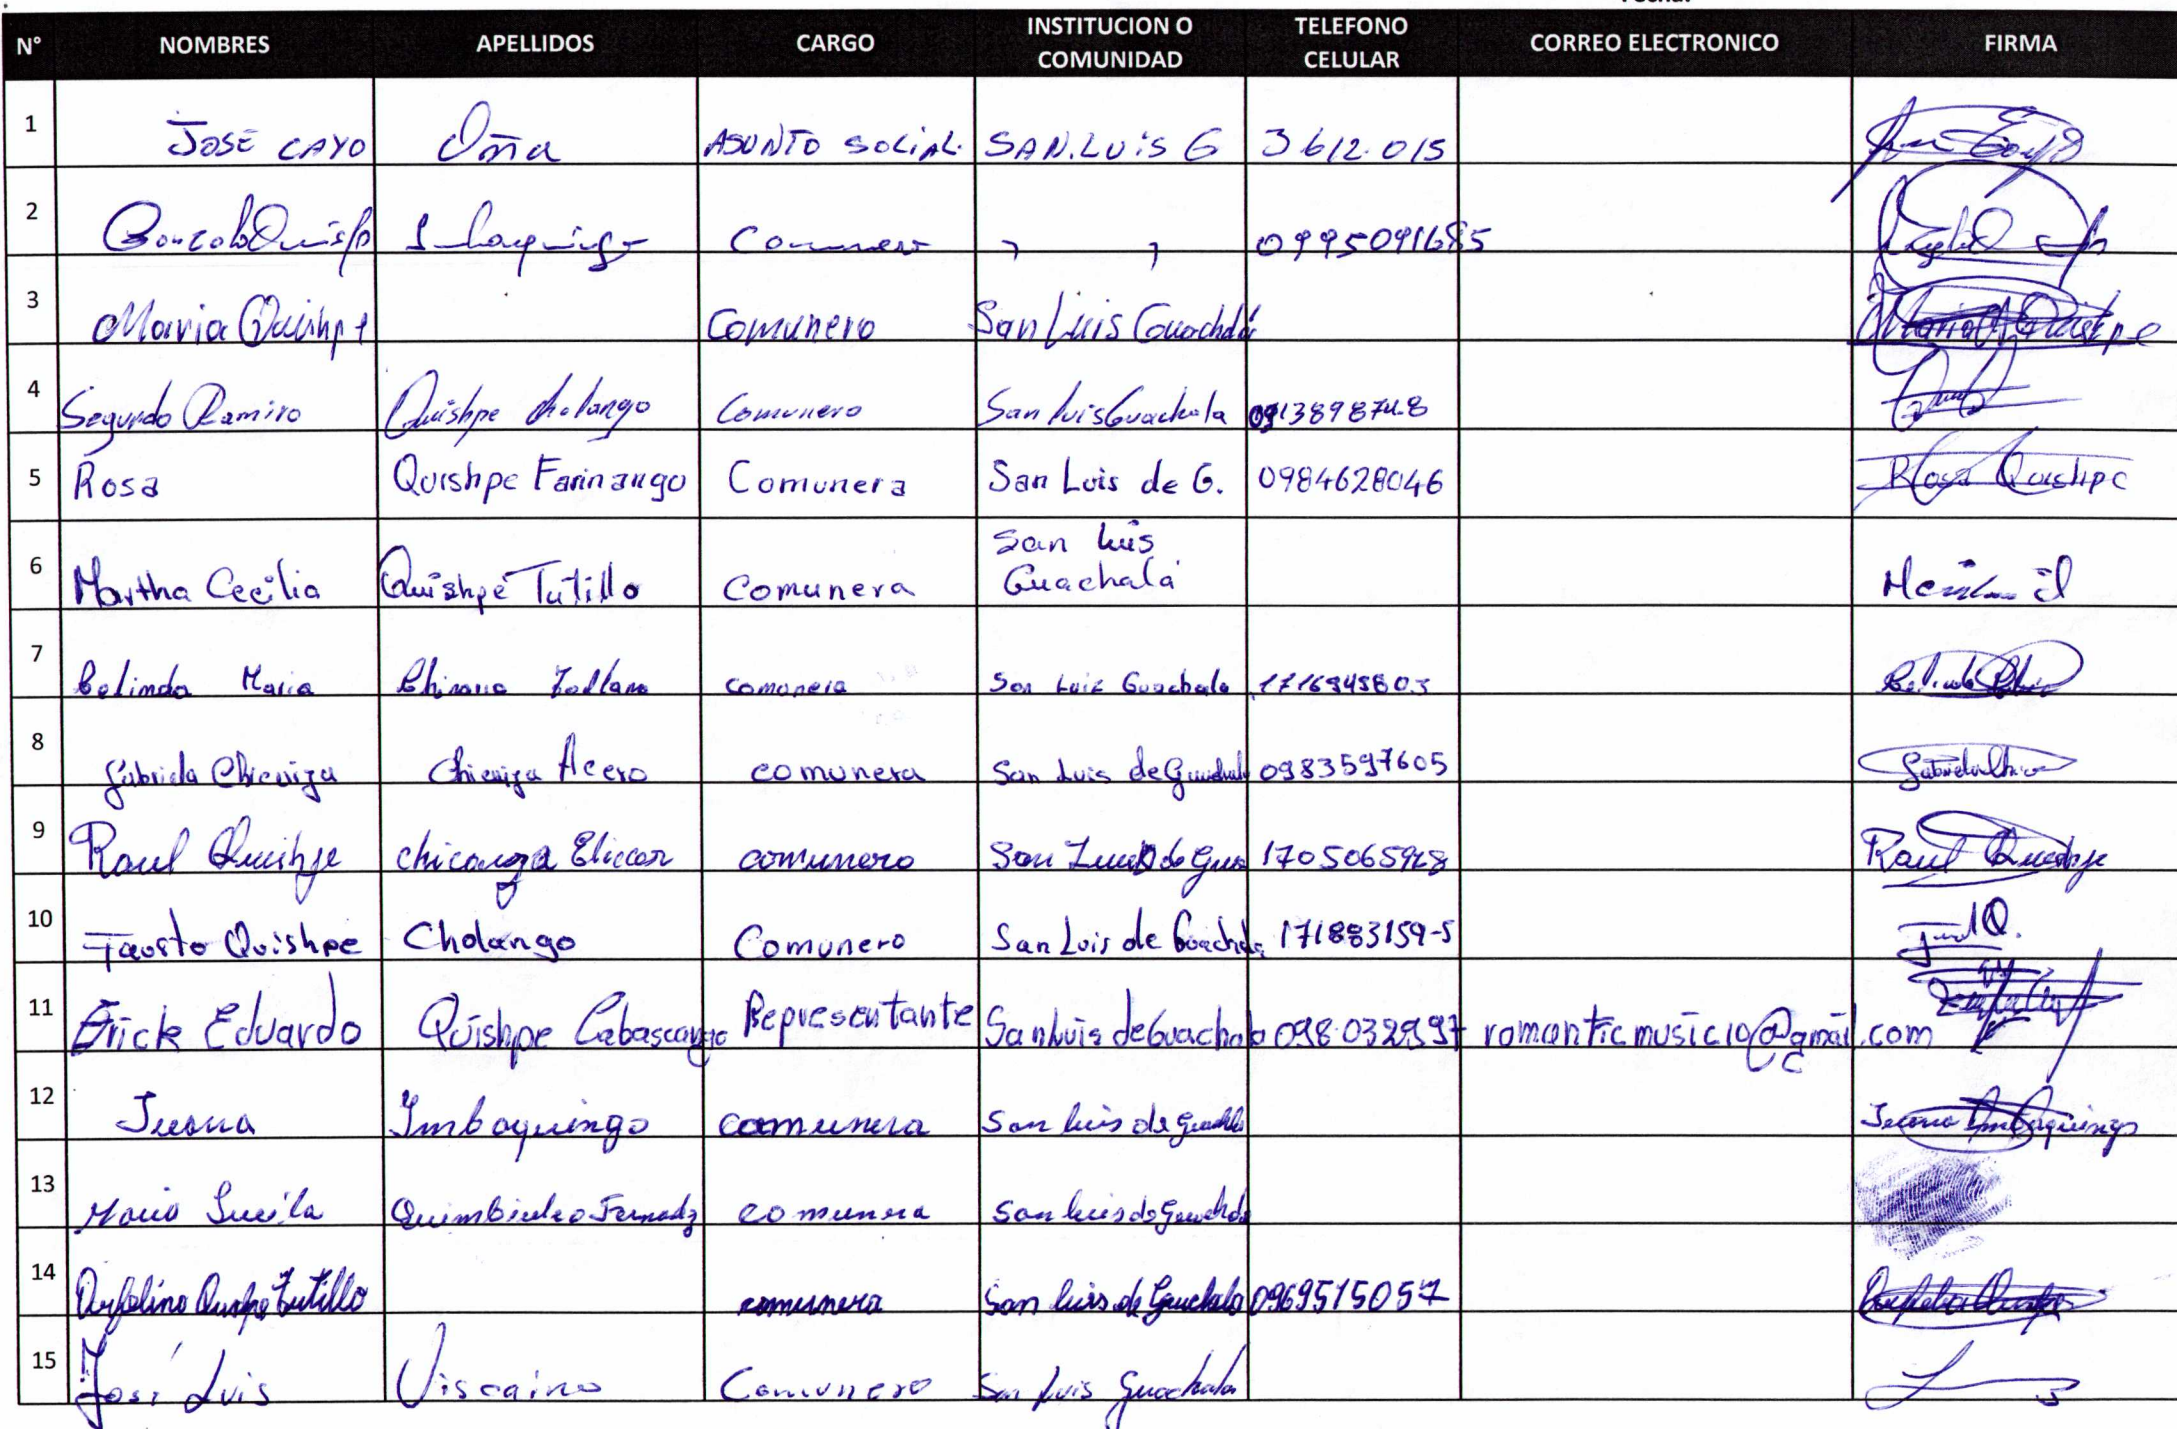 N° NOMBRES APELLIDOS CARGO INSTITUCION O COMUNIDAD TELEFONO CELULAR CORREO ELECTRONICO FIRMA
1 JOSE CAYO Oña ASUNTO SOCIAL. SAN.LUIS G 3612.015
2 Imbaquingo Comunero , , 0995091685
3 Maria Quishpe Comunero San Luis Guachalá Maria Quishpe
4 Segundo Ramiro Quishpe Cholango Comunero San Luis Guachala
5 Rosa Quishpe Farinango Comunera San Luis de G. 0984628046 Rosa Quishpe
6 Martha Cecilia Quishpe Tutillo Comunera San Luis Guachalá
7 Belinda Maria comunera San Luis Guachala
8 Gabriela Chicaiza Chicaiza Acero comunera San Luis de Guachala 0983597605
9 Raul Quishpe chicaiza comunero San de Gua Raul Quishpe
10 Fausto Quishpe Cholango Comunero San Luis de Guachala 171883159-5
11 Erick Eduardo Quishpe Cabascango Representante San Luis de Guachala 098 032997 romanticmusic10@gmail.com
12 Juana Imbaquingo comunera San luis de Guachala Juana Imbaquingo
13 Maria Lucila comunera San luis de Guachala
14 Quishpe Tutillo comunera San luis de Guachala 0969515057
15 José Luis Viscaino Comunero San Luis Guachala